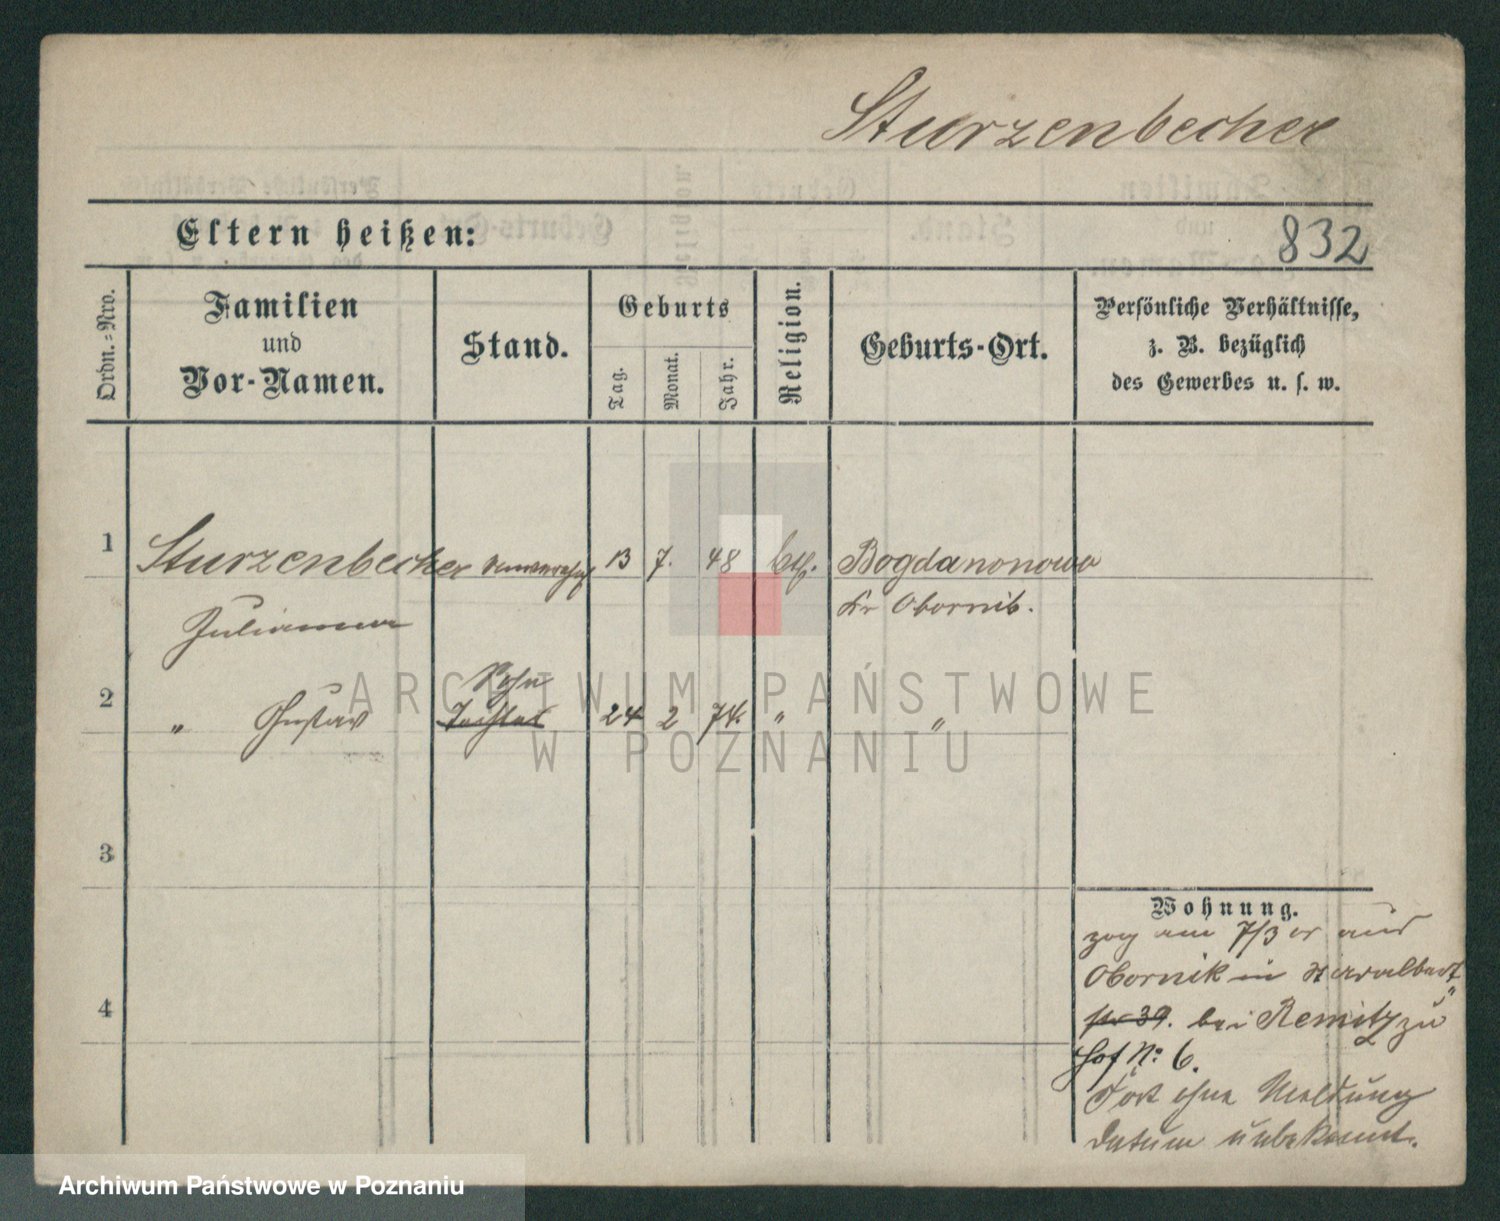 Sturzenbecher
Eltern heißen:
832
Ordn.-Nro.
Familien
und
Vor-Namen.
Stand.
Geburts
Tag.
Monat.
Jahr.
Religion.
Geburts-Ort.
Persönliche Verhältnisse,
z. B. bezüglich
des Gewerbes u. s. w.
1
Sturzenbecher
13 7. 48
Bogdanonowo
Julianna
Kr Obornik.
2
Sohn
" Gustav
Tochter
24 2 74. " "
3
4
Wohnung.
zog am 7/3 er aus
Obornik in
39. bei Remitz zu
Hof No: 6.
Fort ohne Meldung
Datum unbekannt.
ARCHIWUM PAŃSTWOWE
W POZNANIU
Archiwum Państwowe w Poznaniu